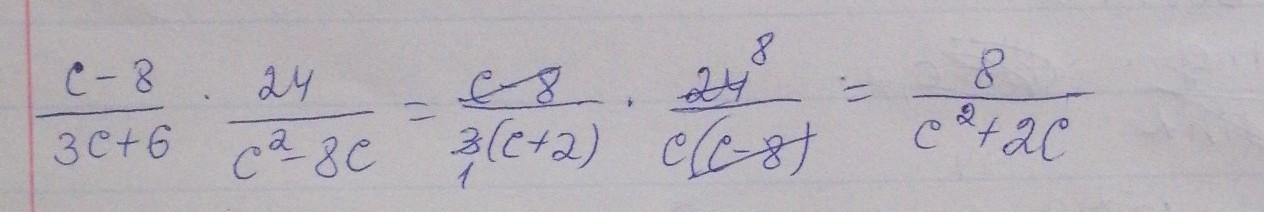 (c-8)/(3c+6) · 24/(c²-8c) = (c-8)/(3(c+2)) 1 · 24 8/(c(c-8)) = 8/(c²+2c)